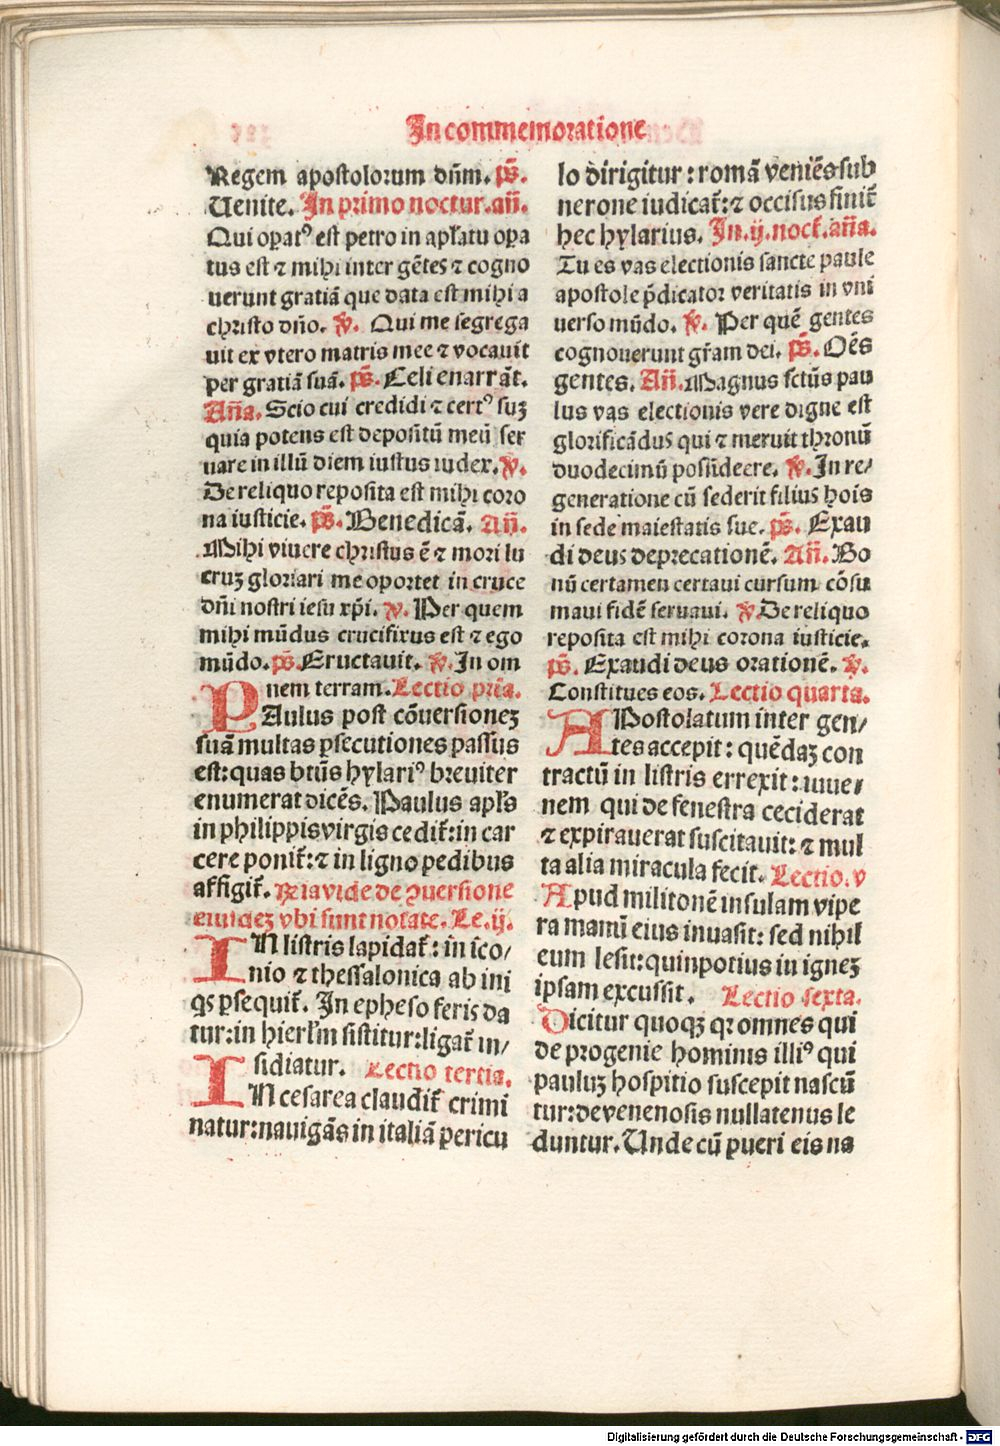 In commemoratione
Regem apostolorum dñm. ps̄.
Uenite. In primo noctur. añ.
Qui opatꝰ est petro in apl̄atu opa
tus est ⁊ mihi inter gētes ⁊ cogno
uerunt gratiā que data est mihi a
christo dño. ℣. Qui me segrega
uit ex vtero matris mee ⁊ vocauit
per gratiā suā. ps̄. Celi enarrāt.
Aña. Scio cui credidi ⁊ certꝰ suꝫ
quia potens est depositū meū ser
uare in illū diem iustus iudex. ℣.
De reliquo reposita est mihi coro
na iusticie. ps̄. Benedicā. Añ.
Mihi viuere christus ē ⁊ mori lu
cruꝫ gloriari me oportet in cruce
dñi nostri iesu xp̄i. ℣. Per quem
mihi mūdus crucifixus est ⁊ ego
mūdo. ps̄. Eructauit. ℣. In om
nem terram. Lectio pria.
PAulus post cōuersioneꝫ
suā multas ꝑsecutiones passus
est: quas btūs hylariꝰ breuiter
enumerat dicēs. Paulus apl̄s
in philippis virgis cedit̄: in car
cere ponit̄: ⁊ in ligno pedibus
affigit̄. ℟ia vide de ꝯuersione
eiusdeꝫ vbi sunt notate. Le. ij.
IN listris lapidat̄: in ico/
nio ⁊ thessalonica ab ini
qs ꝑsequit̄. In epheso feris da
tur: in hierl̄m sistitur: ligat̄ in/
sidiatur. Lectio tertia.
IN cesarea claudit̄ crimi
natur: nauigās in italiā pericu
lo dirigitur: romā veniēs sub
nerone iudicat̄: ⁊ occisus finit̄
hec hylarius. In .ij. noct̄. aña.
Tu es vas electionis sancte paule
apostole p̄dicator veritatis in vni
uerso mūdo. ℣. Per quē gentes
cognouerunt gr̄am dei. ps̄. Oēs
gentes. Añ. Magnus sctūs pau
lus vas electionis vere digne est
glorificādus qui ⁊ meruit thronū
duodecimū possidere. ℣. In re/
generatione cū sederit filius hois
in sede maiestatis sue. ps̄. Exau
di deus deprecationē. Añ. Bo
nū certamen certaui cursum cōsu
maui fidē seruaui. ℣. De reliquo
reposita est mihi corona iusticie.
ps̄. Exaudi deus orationē. ℣.
Constitues eos. Lectio quarta.
APostolatum inter gen/
tes accepit: quēdaꝫ con
tractū in listris errexit: iuue/
nem qui de fenestra ceciderat
⁊ expirauerat suscitauit: ⁊ mul
ta alia miracula fecit. Lectio. v
Apud militonē insulam vipe
ra manū eius inuasit: sed nihil
eum lesit: quinpotius in igneꝫ
ipsam excussit. Lectio sexta.
Dicitur quoqꝫ qꝛ omnes qui
de progenie hominis illiꝰ qui
pauluꝫ hospitio suscepit nascū
tur: de venenosis nullatenus le
duntur. Unde cū pueri eis na